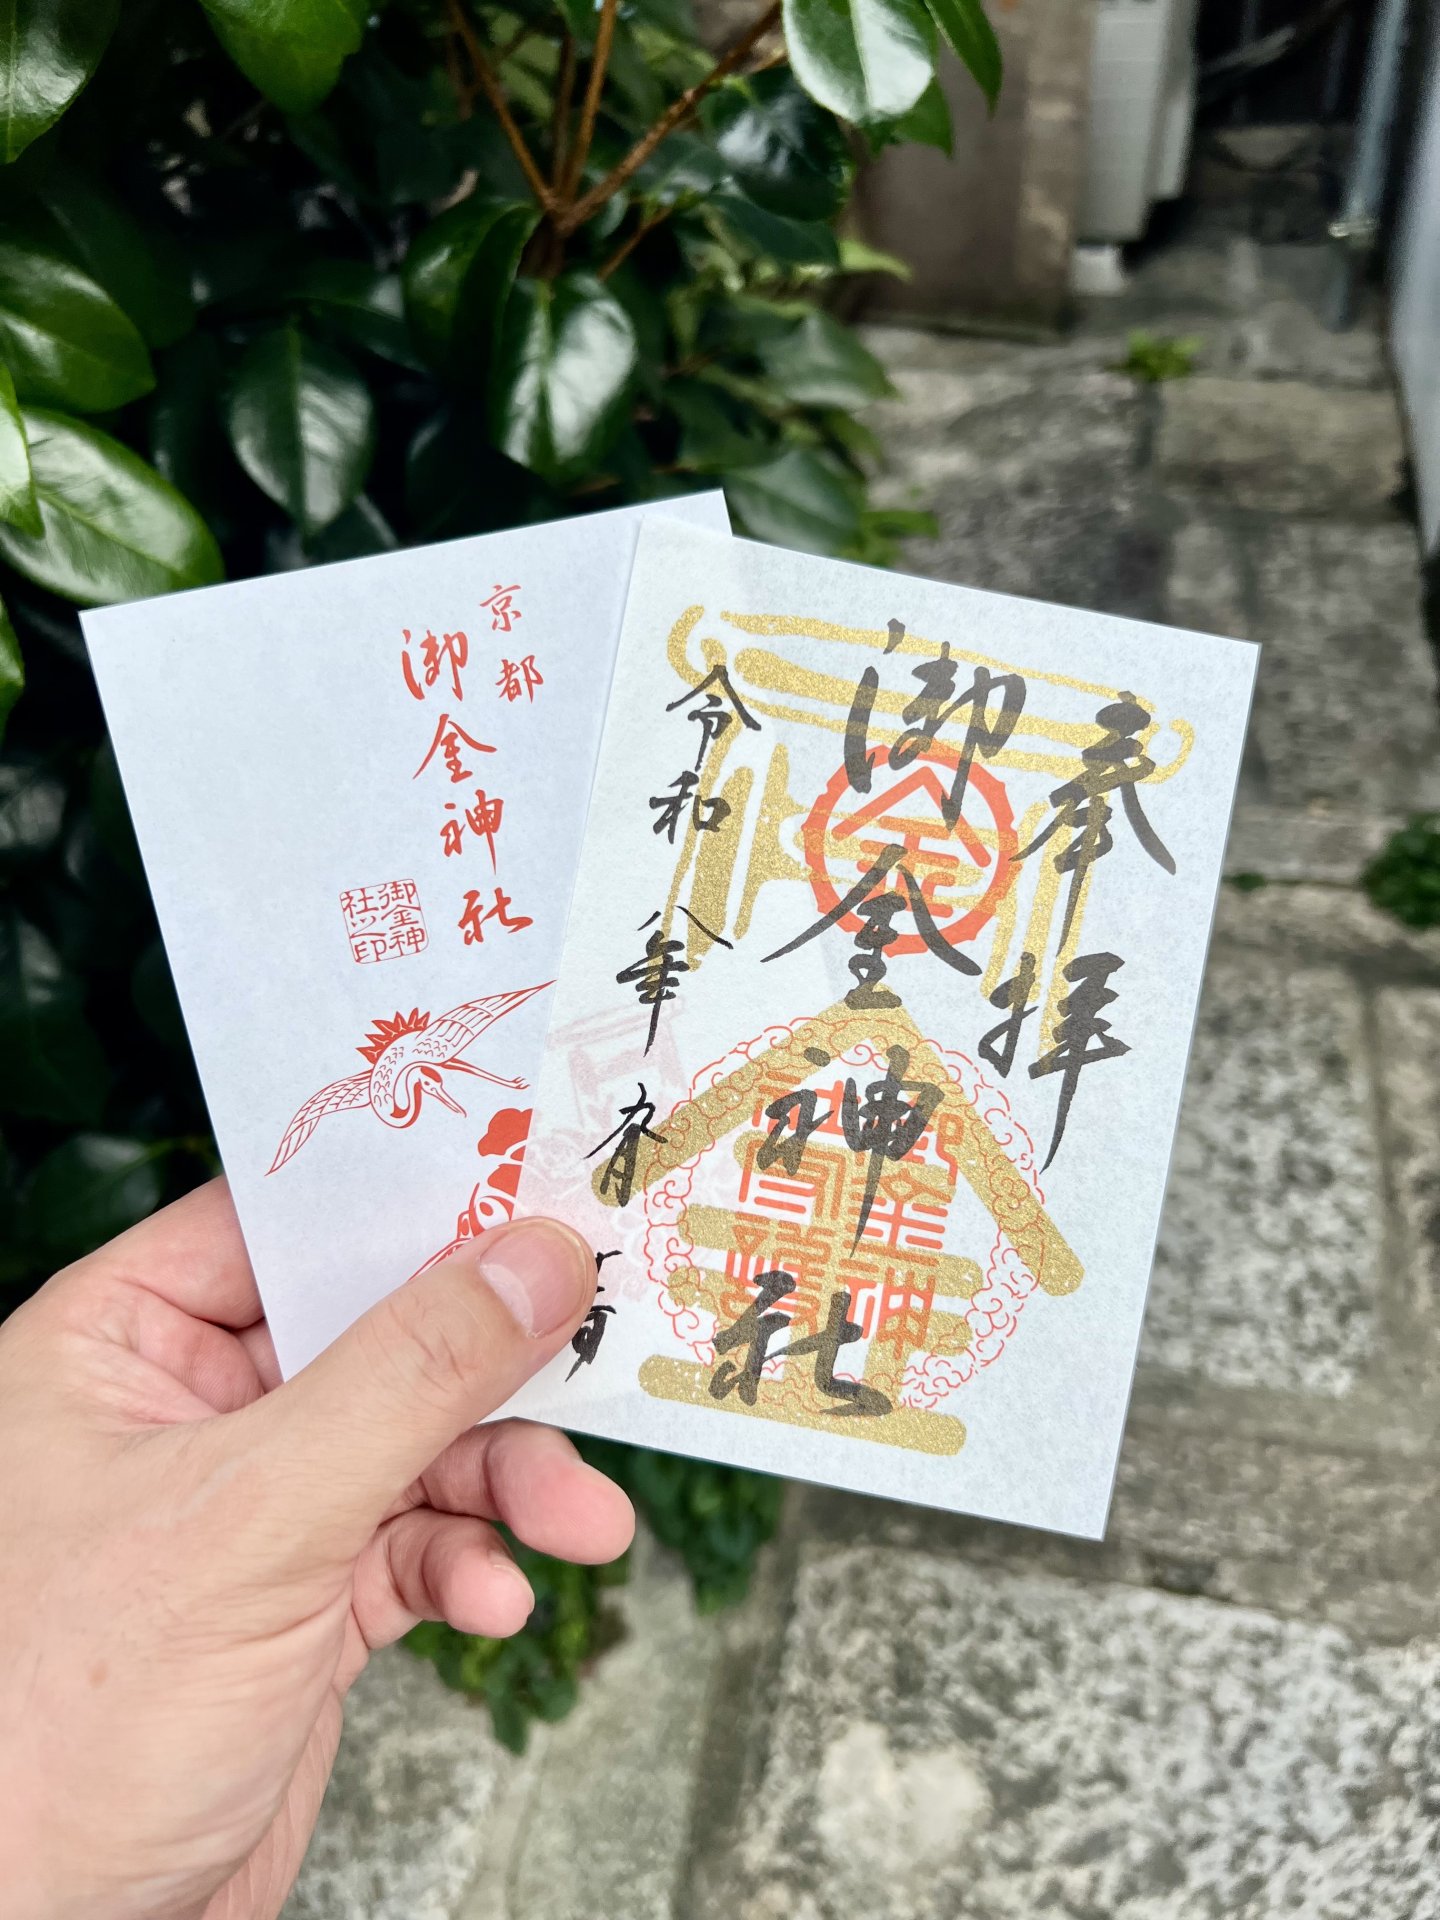 奉拝
御金神社
令和八年
九月
金
御金神社
京都
御金神社
御金神
社之印